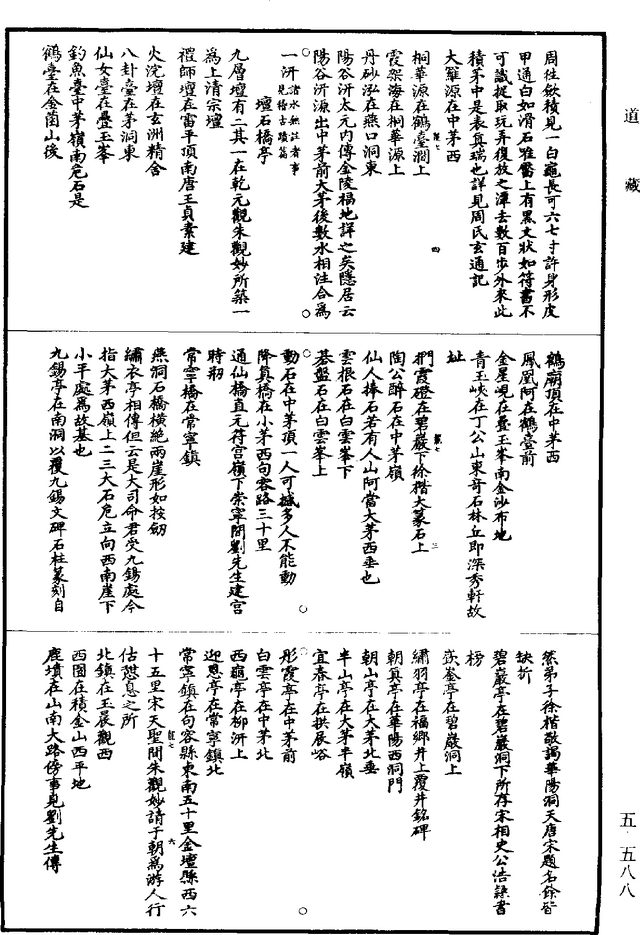 道藏
周往斂積見一白龜長可六七寸許身形皮
甲通白如滑石堆腎上有黑文狀如符書不
可識捉取玩弄復放之潭去數百步外來此
積茅中是表真瑞也詳見周氏玄通記
大羅源在中茅西
桐華源在鶴臺澗上
霞架海在桐華源上
丹砂泓在燕口洞東
陽谷汧太元內傳金陵福地詳之矣隱居云
陽谷汧源出中茅前大茅後數水相注合為
一汧諸水無註者事見稽古蹟篇
壇石橋亭
九層壇有二其一在乾元觀朱觀妙所築一
為上清宗壇
禮師壇在雷平頂南唐王貞素建
火浣壇在玄洲精舍
八卦臺在茅洞東
仙女臺在疊玉峯
釣魚臺中茅嶺南危石是
鶴臺在金菌山後
鶴廟頂在中茅西
鳳凰阿在鶴臺前
金星峴在疊玉峯南金沙布地
青玉峽在丁公山東奇石林立即深秀軒故
址
捫霞磴在碧巖下徐楷大篆石上
陶公醉石在中茅嶺
仙人捧石若有人山阿當大茅西垂也
雲根石在白雲峯下
碁盤石在白雲峯上
動石在中茅頂一人可撼多人不能動
降真橋在小茅西句容路三十里
通仙橋直元符宮嶺下崇寧間劉先生建宮
時刱
常寧橋在常寧鎮
燕洞石橋橫絶兩崖形如按劒
繡衣亭相傳但云是大司命君受九錫處今
指大茅西嶺上二三大石危立向西南崖下
小平處為故基也
九錫亭在南洞以覆九錫文碑石柱篆刻自
然弟子徐楷敬謁華陽洞天唐宋題名餘皆
缺折
碧巖亭在碧巖洞下所存宋相史公浩隷書
榜
嵌崟亭在碧巖洞上
繡羽亭在福鄉井上覆井銘碑
朝真亭在華陽西洞門
朝山亭在大茅北垂
半山亭在大茅半嶺
宜春亭在拱辰谷
彤霞亭在中茅前
白雲亭在中茅北
西龜亭在柳汧上
迎恩亭在常寧鎮北
常寧鎮在句容縣東南五十里金壇縣西六
十五里宋天聖間朱觀妙請于朝為游人行
估憩息之所
北鎮在玉晨觀西
西園在積金山西平地
鹿墳在山南大路傍事見劉先生傳
五·五八八